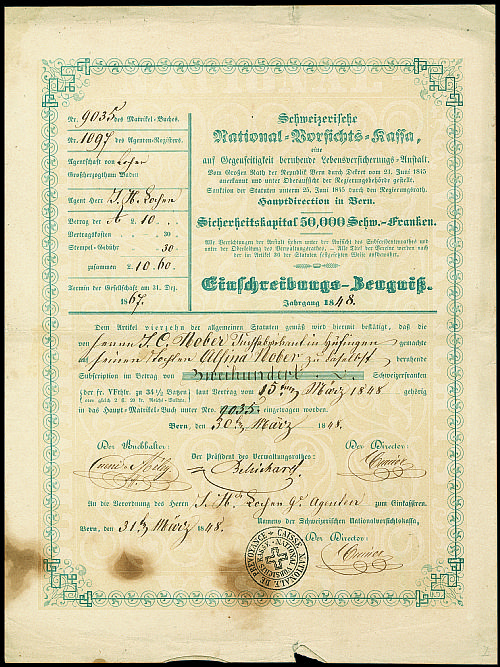 Nr. 9035 des Matrikel-Buches.
Nr. 1097 des Agenten-Registers.
Agentschaft von Lahr
Großherzogthum Baden
Agent Herr J. H. Lochen
Betrag der A £. 10 .
Vertragskosten " . 30
Stempel-Gebühr " . 30
zusammen £. 10.60.
Termin der Gesellschaft am 31. Dez.
1867.
Schweizerische
National-Vorsichts-Kassa,
eine
auf Gegenseitigkeit beruhende Lebensversicherungs-Anstalt.
Vom Großen Rath der Republik Bern durch Dekret vom 21. Juni 1845
anerkannt und unter Oberaufsicht der Regierungsbehörde gestellt.
Sanktion der Statuten unterm 25. Juni 1845 durch den Regierungsrath.
Hauptdirection in Bern.
Sicherheitskapital 50,000 Schw.-Franken.
Alle Verrichtungen der Anstalt stehen unter der Aufsicht des und
unter der Obhut des Verwaltungsrathes, — Alle Titel der Vereine werden nach
der im Artikel 30 der Statuten festgesetzten Weise aufbewahrt.
Einschreibungs-Zeugniß.
Jahrgang 1848.
Dem Artikel vierzehn der allgemeinen Statuten gemäß wird hiermit bestätigt, daß die
von Herrn J. C. Nober in Hüfingen gemachte
auf seinen Tochter Nober zu beruhende
Subscription im Betrag von Zweihundert Schweizerfranken
laut Vertrag vom 15ten März 1848 gehörig
in das Haupt-Matrikel-Buch unter Nro. 9035 eingetragen worden.
Bern, den 30. März 1848.
Der Buchhalter:
Der Präsident des Verwaltungsrathes:
Der Director:
An die Verordnung des Herrn J. Hch Lochen Agenten zum Einkassiren.
Bern, den 31. März 1848.
Namens der Schweizerischen Nationalvorsichtskassa,
Der Director:
CAISSE NATIONALE DE PREVOYANCE